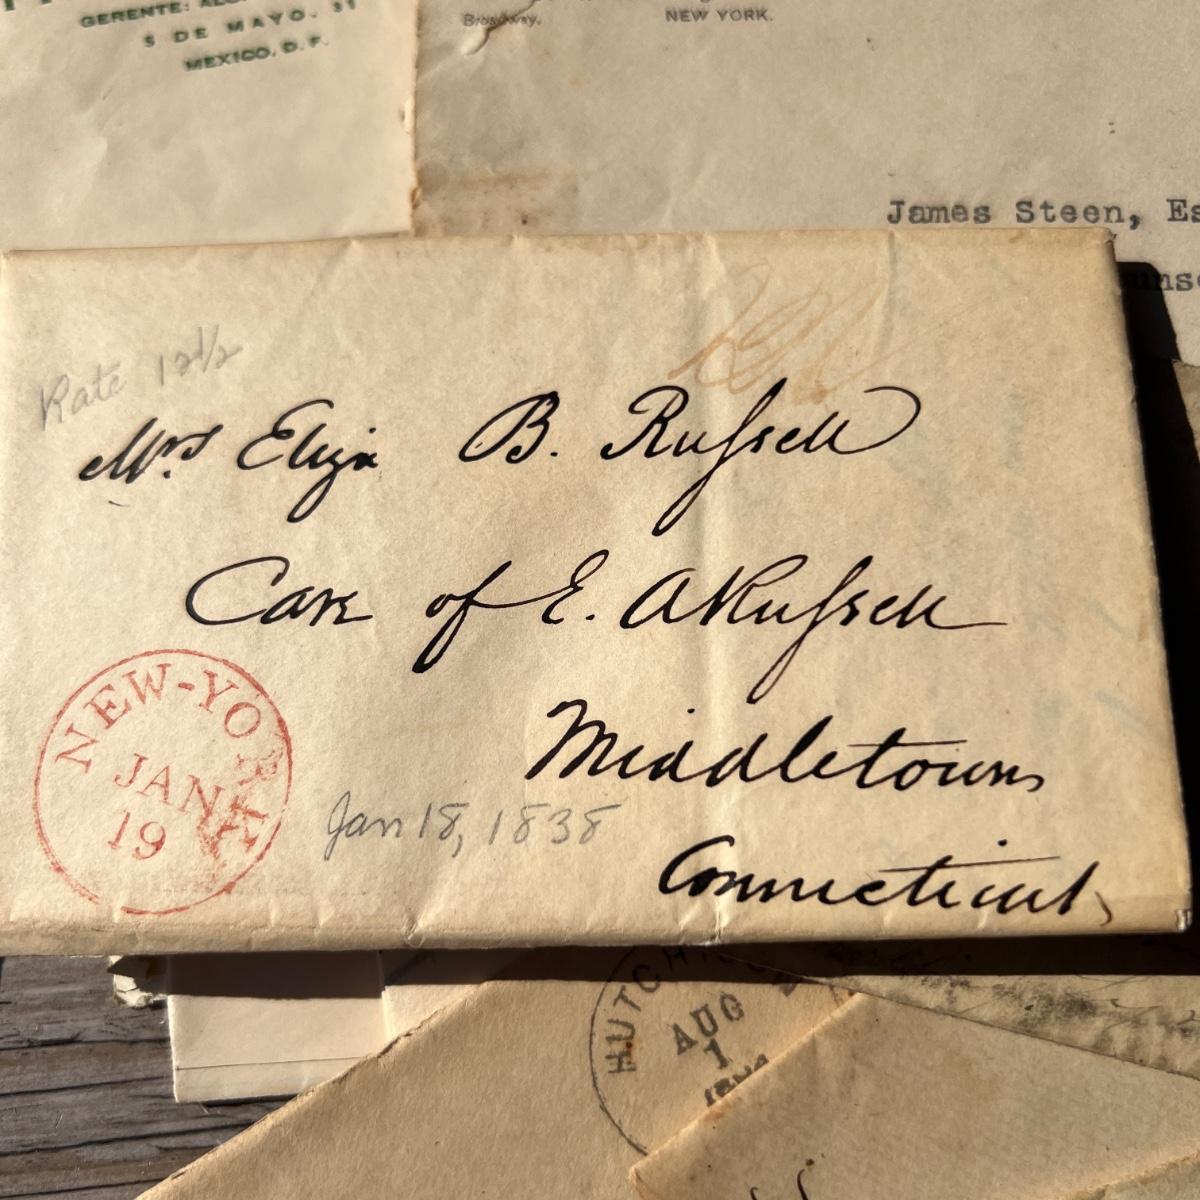 GERENTE:
5 DE MAYO. 31
MEXICO, D.F.
Broadway,
NEW YORK.
James Steen, Es
Rate 12½
Mrs Eliza B. Russell
Care of E. A Russell
Middletown
Connecticut,
NEW-YORK
JAN
19
Jan 18, 1838
AUG
1